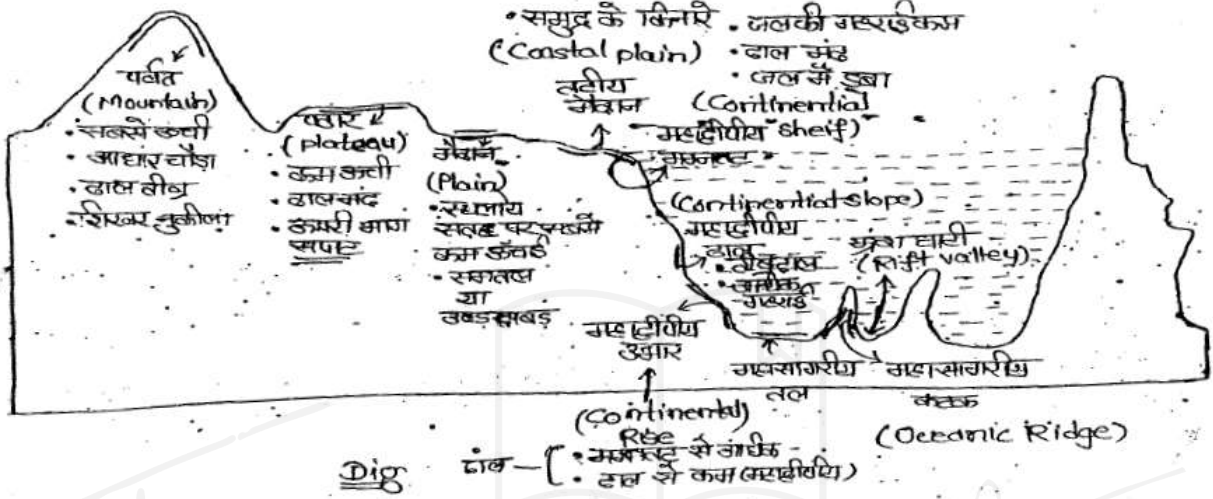 पर्वत
(Mountain)
• सबसे ऊंची
• आधार चौड़ा
• ढाल तीव्र
• शिखर नुकीला
पठार
(plateau)
• कम ऊंची
• ढाल मंद
• ऊपरी भाग
सपाट
मैदान
(Plain)
• स्थलीय
सतह पर सबसे
कम ऊंचाई
• समतल
या
उबड़ खाबड़
• समुद्र के किनारे
(Coastal plain)
तटीय
मैदान
• जल की गहराई कम
• ढाल मंद
• जल में डूबा
(Continential
Sheif)
महाद्वीपीय
मग्नतट
(Continentialslope)
महाद्वीपीय
ढाल
• तीव्र ढाल
• अधिक
गहराई
भ्रंश घाटी
(Rift valley)
महाद्वीपीय
उभार
(Continental)
Rise
महासागरीय
तल
महासागरीय
कटक
(Oceanic Ridge)
Dig
ढाल – [ • मग्नतट से अधिक
• ढाल से कम (महाद्वीपीय)